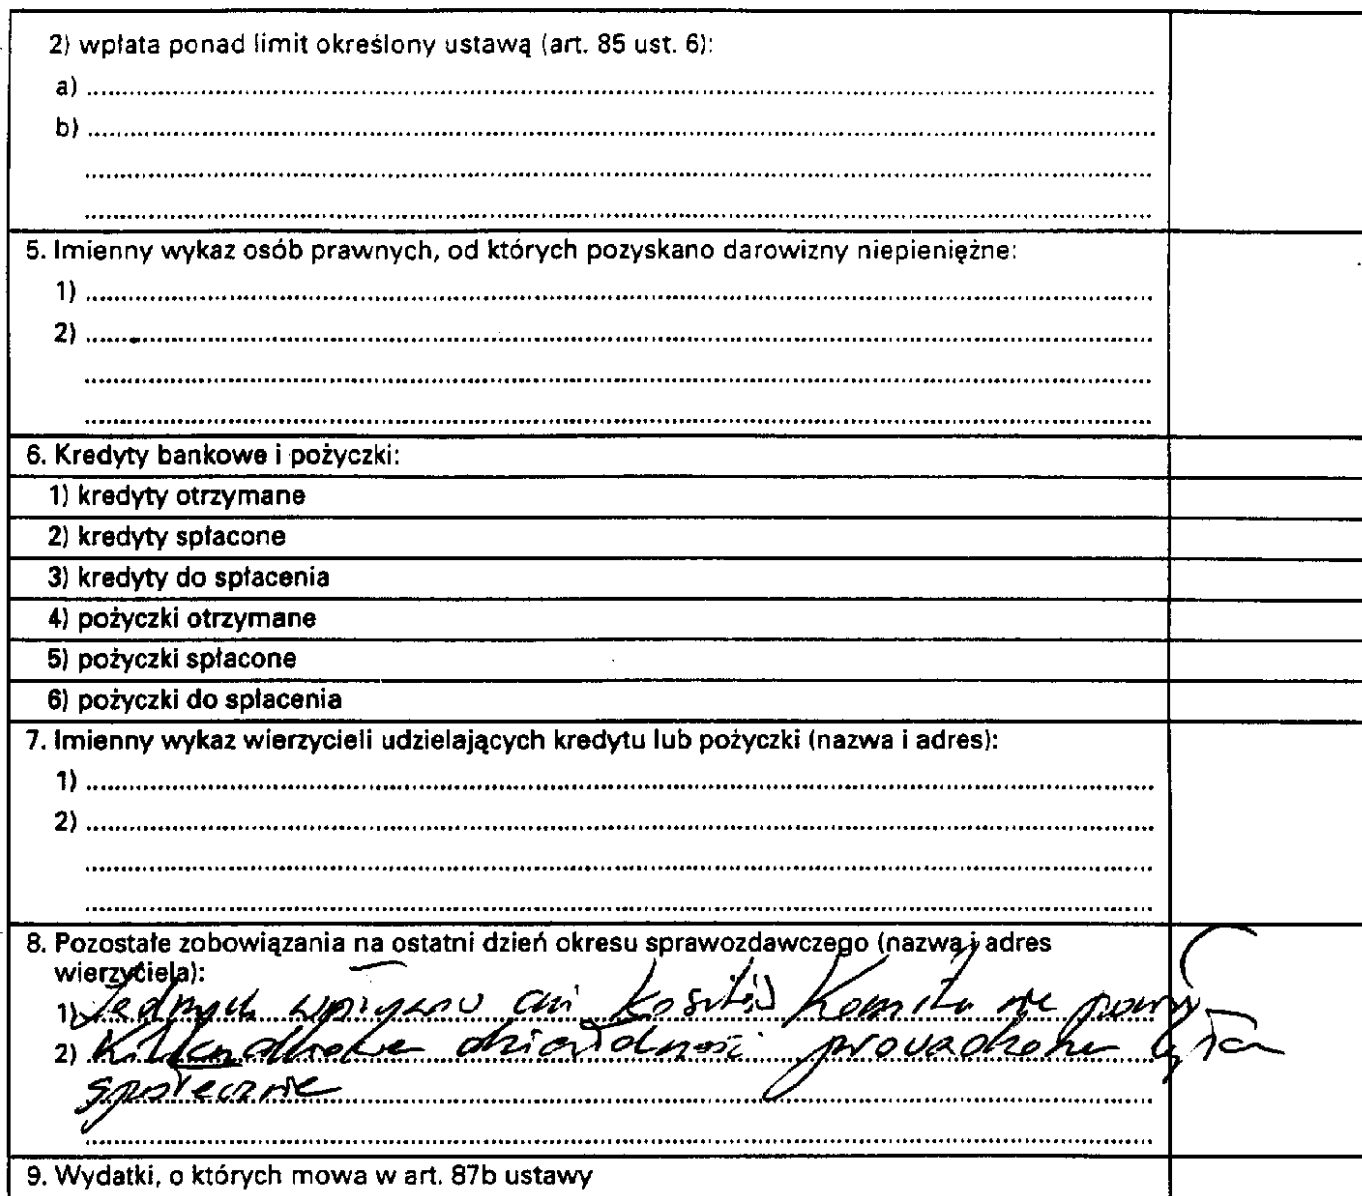 2) wpłata ponad limit określony ustawą (art. 85 ust. 6):
a)
b)
5. Imienny wykaz osób prawnych, od których pozyskano darowizny niepieniężne:
1)
2)
6. Kredyty bankowe i pożyczki:
1) kredyty otrzymane
2) kredyty spłacone
3) kredyty do spłacenia
4) pożyczki otrzymane
5) pożyczki spłacone
6) pożyczki do spłacenia
7. Imienny wykaz wierzycieli udzielających kredytu lub pożyczki (nazwa i adres):
1)
2)
8. Pozostałe zobowiązania na ostatni dzień okresu sprawozdawczego (nazwa i adres
wierzyciela):
1) kosztów Komitet nie
2) działalność prowadzona była
społecznie
9. Wydatki, o których mowa w art. 87b ustawy